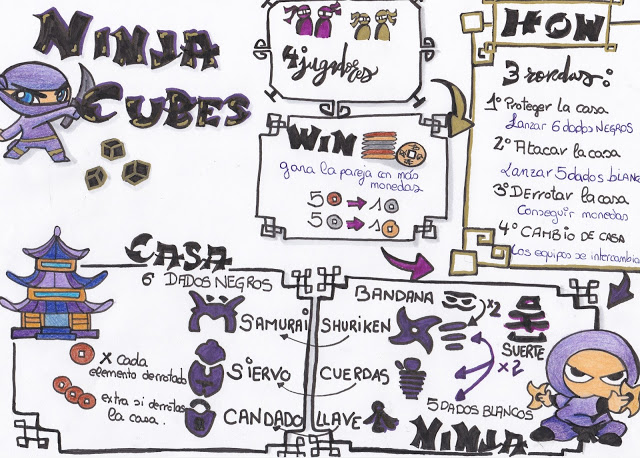 NINJA
CUBES
4 jugadores
WIN
gana la pareja con más
monedas
5 → 1
5 → 1
HOW
3 rondas:
1º Proteger la casa
Lanzar 6 dados NEGROS
2º Atacar la casa
Lanzar 5 dados blanc
3º Derrotar la casa
Conseguir monedas
4º CAMBIO DE CASA
Los equipos se intercambia
CASA
6 DADOS NEGROS
SAMURAI
SIERVO
CANDADO
X cada
elemento derrotado
extra si derrotas
la casa.
BANDANA
x2
SHURIKEN
SUERTE
x2
CUERDAS
5 DADOS BLANCOS
LLAVE
NINJA